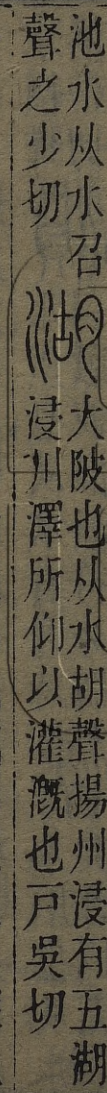 池水从水召
聲之少切
湖
大陂也从水胡聲揚州浸有五湖
浸川澤所仰以灌漑也戶吳切